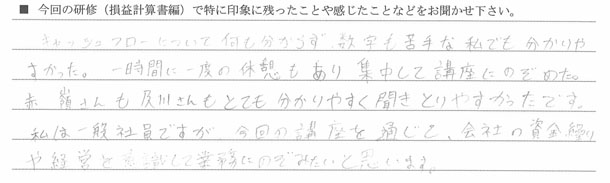 ■ 今回の研修（損益計算書編）で特に印象に残ったことや感じたことなどをお聞かせ下さい。
キャッシュフローについて何も分からず、数字も苦手な私でも分かりや
すかった。一時間に一度の休憩もあり集中して講座にのぞめた。
赤嶺さんも及川さんもとても分かりやすく聞きとりやすかったです。
私は一般社員ですが、今回の講座を通じて、会社の資金繰り
や経営を意識して業務にのぞみたいと思います。